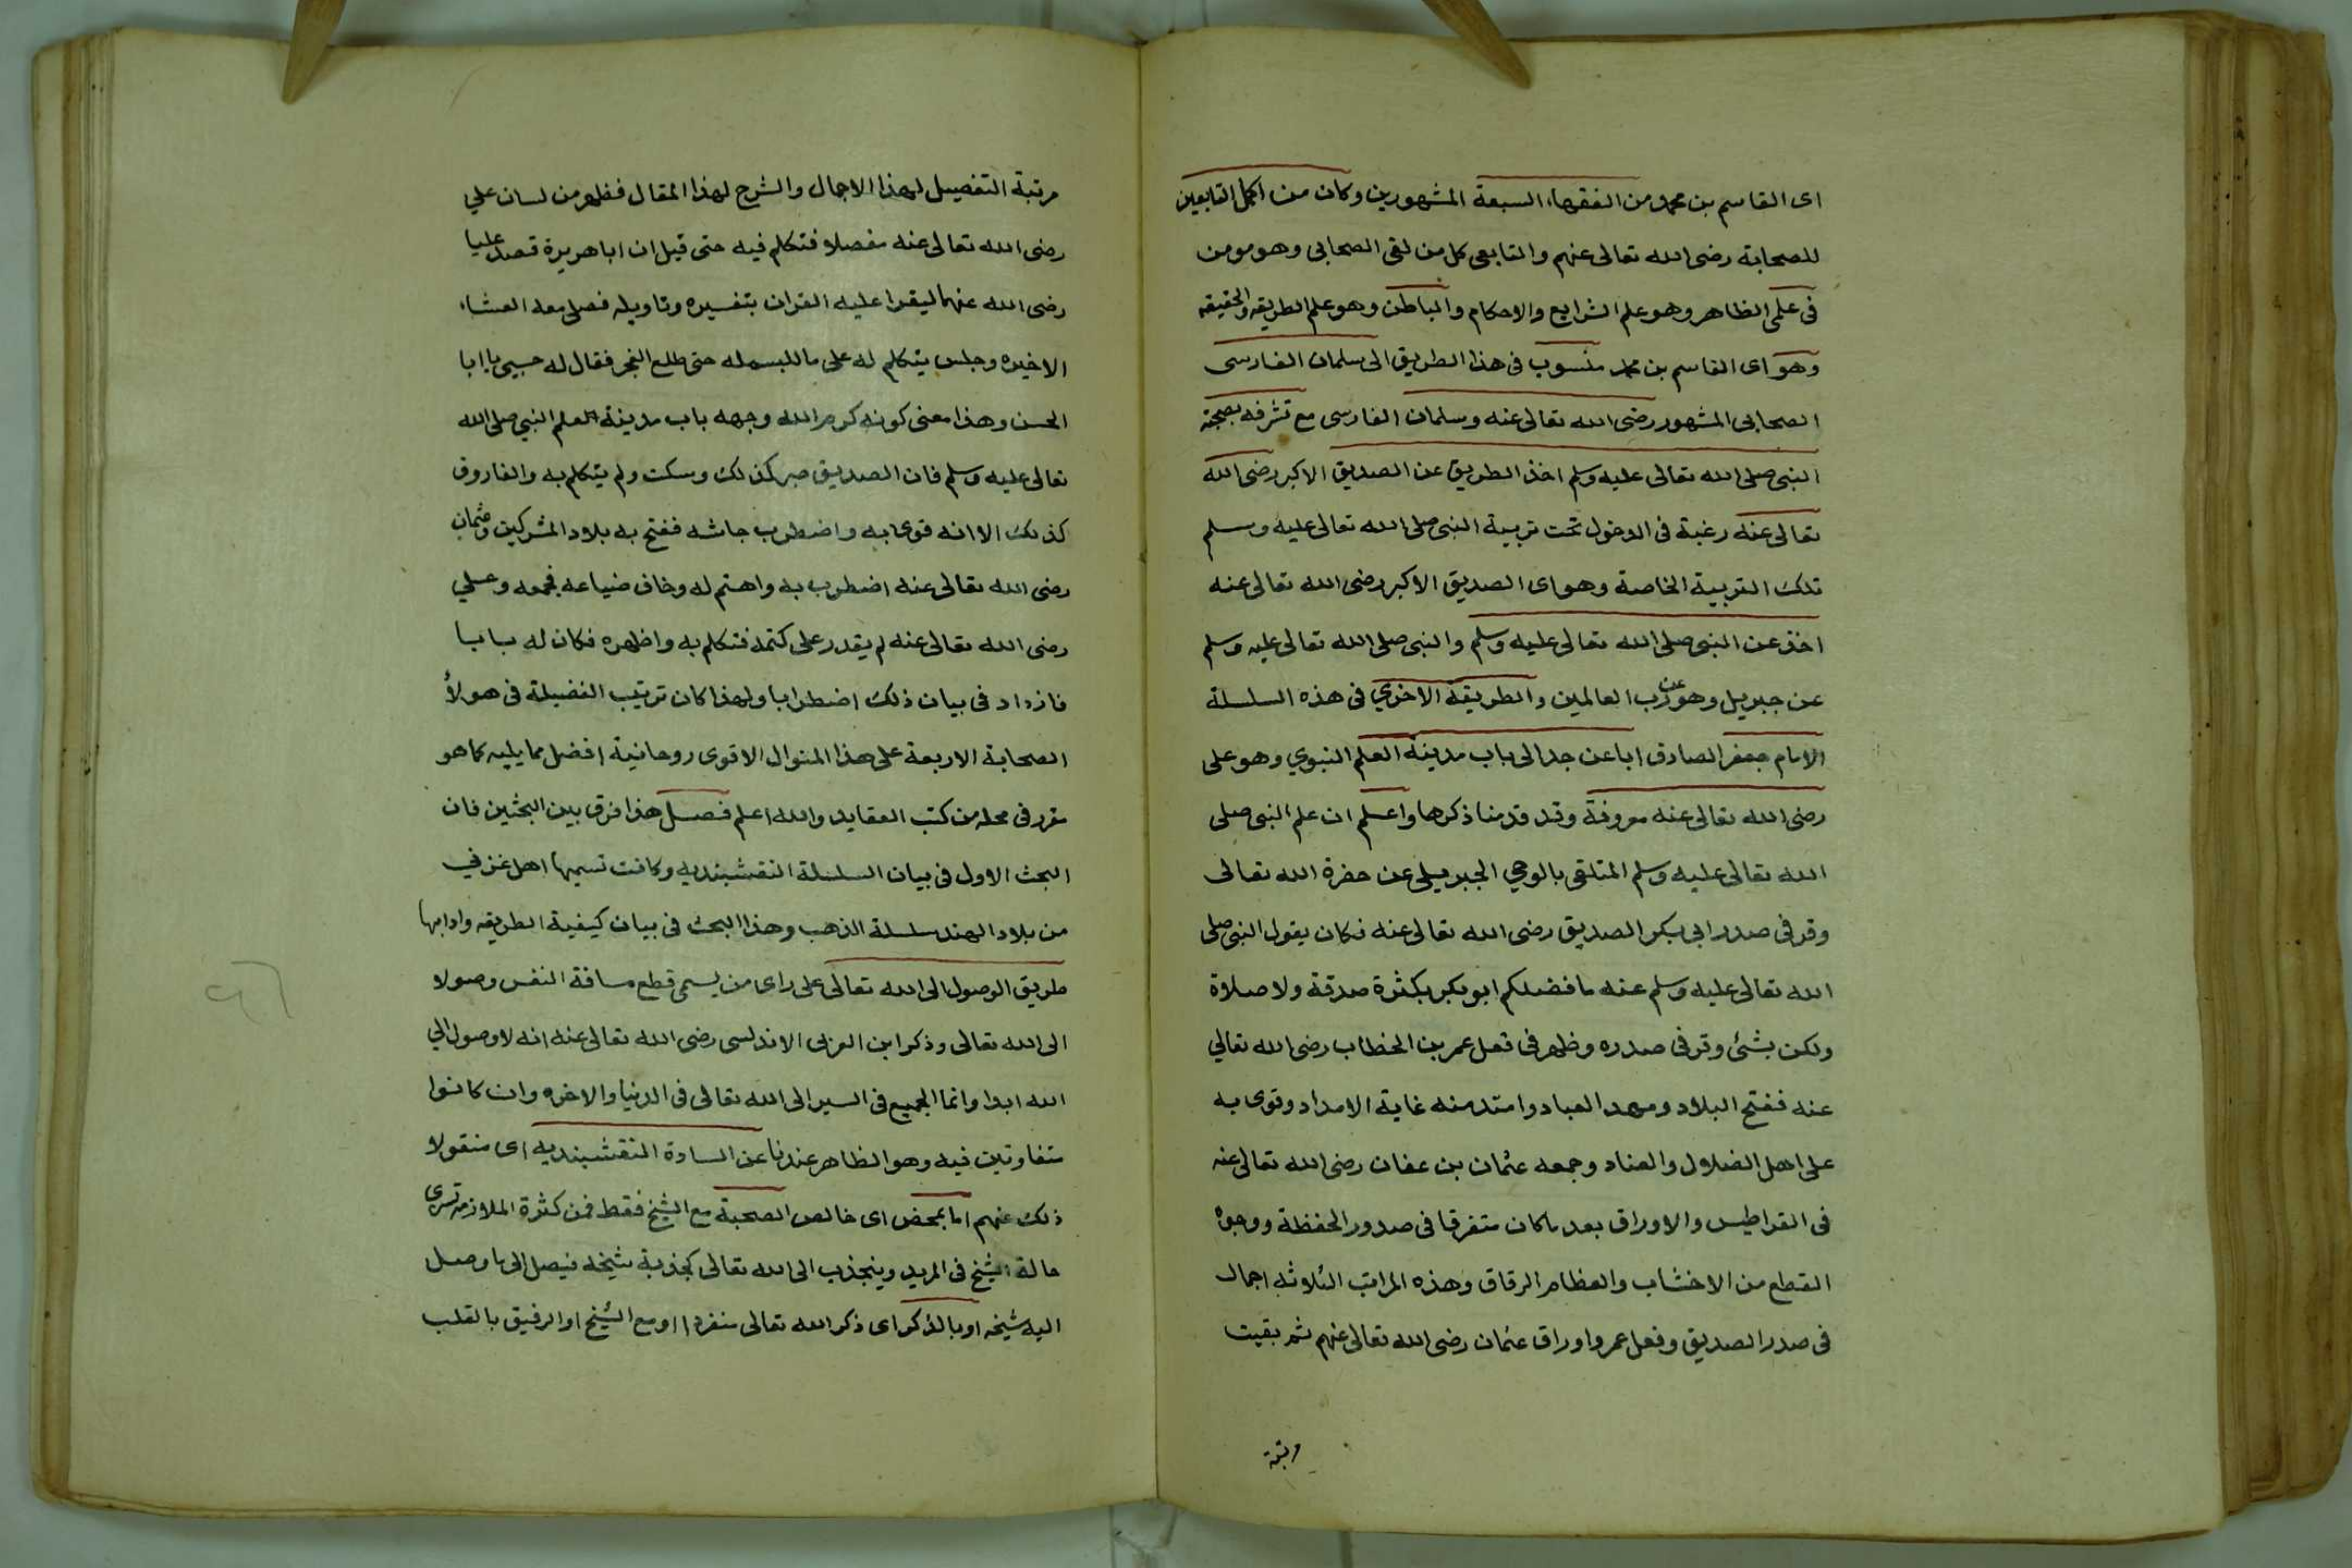 اى القاسم بن محمد من الفقهاء السبعة المشهورين وكان من اكمل التابعين
للصحابة رضى الله تعالى عنهم والتابعى كل من لقى الصحابى وهو مومن
فى علمى الظاهر وهو علم الشرايع والاحكام والباطن وهو علم الطريقه والحقيقه
وهو اى القاسم بن محمد منسوب فى هذا الطريق الى سلمان الفارسى
الصحابى المشهور رضى الله تعالى عنه وسلمان الفارسى مع تشرفه بصحبة
النبى صلى الله تعالى عليه وسلم اخذ الطريق عن الصديق الاكبر رضى الله
تعالى عنه رغبة فى الدخول تحت تربية النبى صلى الله تعالى عليه وسلم
تلك التربية الخاصة وهو اى الصديق الاكبر رضى الله تعالى عنه
اخذ عن النبى صلى الله تعالى عليه وسلم والنبى صلى الله تعالى عليه وسلم
عن جبريل وهو عن رب العالمين والطريقة الاخرى فى هذه السلسلة
الامام جعفر الصادق ابا عن جد الى باب مدينة العلم النبوي وهو على
رضى الله تعالى عنه معروفة وقد قدمنا ذكرها واعلم ان علم النبى صلى
الله تعالى عليه وسلم المتلقى بالوحي الجبريلى عن حضرة الله تعالى
وقر فى صدر ابى بكر الصديق رضى الله تعالى عنه فكان يقول النبى صلى
الله تعالى عليه وسلم عنه ما فضلكم ابو بكر بكثرة صدقة ولا صلاة
ولكن بشئ وقر فى صدره وظهر فى فعل عمر بن الخطاب رضى الله تعالي
عنه ففتح البلاد ومهد العباد وامتد منه غاية الامداد وقوى به
على اهل الضلال والعناد وجمعه عثمان بن عفان رضى الله تعالى عنه
فى القراطيس والاوراق بعد ما كان متفرقا فى صدور الحفظة ووجوه
القطع من الاخشاب والعظام الرقاق وهذه المراتب الثلاثه اجمال
فى صدر الصديق وفعل عمر واوراق عثمان رضى الله تعالى عنهم ثم بقيت
مرتبة
مرتبة التفصيل لهذا الاجمال والشرح لهذا المقال فظهر من لسان علي
رضى الله تعالى عنه مفصلا فتكلم فيه حتى قيل ان ابا هريرة قصد عليا
رضى الله عنهما ليقرا عليه القران بتفسيره وتاويله فصلى معه العشاء
الاخيره وجلس يتكلم له على ما للبسمله حتى طلع الفجر فقال له حسبى يا ابا
الحسن وهذا معنى كونه كرم الله وجهه باب مدينة العلم النبي صلى الله
تعالى عليه وسلم فان الصديق صبر كذلك وسكت ولم يتكلم به والفاروق
كذلك الا انه قوى به واضطرب جاشه ففتح به بلاد المشركين وعثمان
رضى الله تعالى عنه اضطرب به واهتم له وخاف ضياعه فجمعه وعلي
رضى الله تعالى عنه لم يقدر على كتمه فتكلم به واظهره فكان له بابا
فازداد فى بيان ذلك اضطرابا ولهذا كان ترتيب الفضيلة فى هولاء
الصحابة الاربعة على هذا المنوال الاقوى روحانية افضل مما يليه كما هو
مقرر فى محله من كتب العقايد والله اعلم فصل هذا فرق بين البحثين فان
البحث الاول فى بيان السلسلة النقشبنديه وكانت تسميها اهل غزني
من بلاد الهند سلسلة الذهب وهذا البحث فى بيان كيفية الطريقه وادابها
طريق الوصول الى الله تعالى على راى من يسمى قطع مسافة النفس وصولا
الى الله تعالى وذكر ابن العربى الاندلسى رضى الله تعالى عنه انه لا وصول الي
الله ابدا وانما الجميع فى السير الى الله تعالى فى الدنيا والاخره وان كانوا
متفاوتين فيه وهو الظاهر عندنا عن السادة النقشبنديه اى منقولا
ذلك عنهم اما بمحض اى خالص الصحبة مع الشيخ فقط فمن كثرة الملازمه تسرى
حالة الشيخ فى المريد وينجذب الى الله تعالى كجذبة شيخه فيصل الى ما وصل
اليه شيخه او بالذكر اى ذكر الله تعالى منفردا او مع الشيخ او الرفيق بالقلب